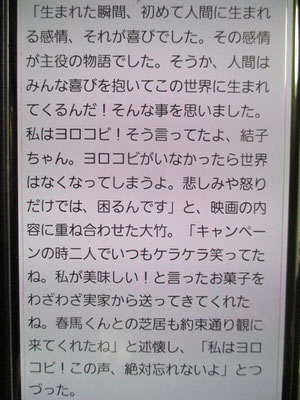 「生まれた瞬間、初めて人間に生まれ
る感情、それが喜びでした。その感情
が主役の物語でした。そうか、人間は
みんな喜びを抱いてこの世界に生まれ
てくるんだ！そんな事を思いました。
私はヨロコビ！そう言ってたよ、結子
ちゃん。ヨロコビがいなかったら世界
はなくなってしまうよ。悲しみや怒り
だけでは、困るんです」と、映画の内
容に重ね合わせた大竹。「キャンペー
ンの時二人でいつもケラケラ笑ってた
ね。私が美味しい！と言ったお菓子を
わざわざ実家から送ってきてくれた
ね。春馬くんとの芝居も約束通り観に
来てくれたね」と述懐し、「私はヨロ
コビ！この声、絶対忘れないよ」とつ
づった。